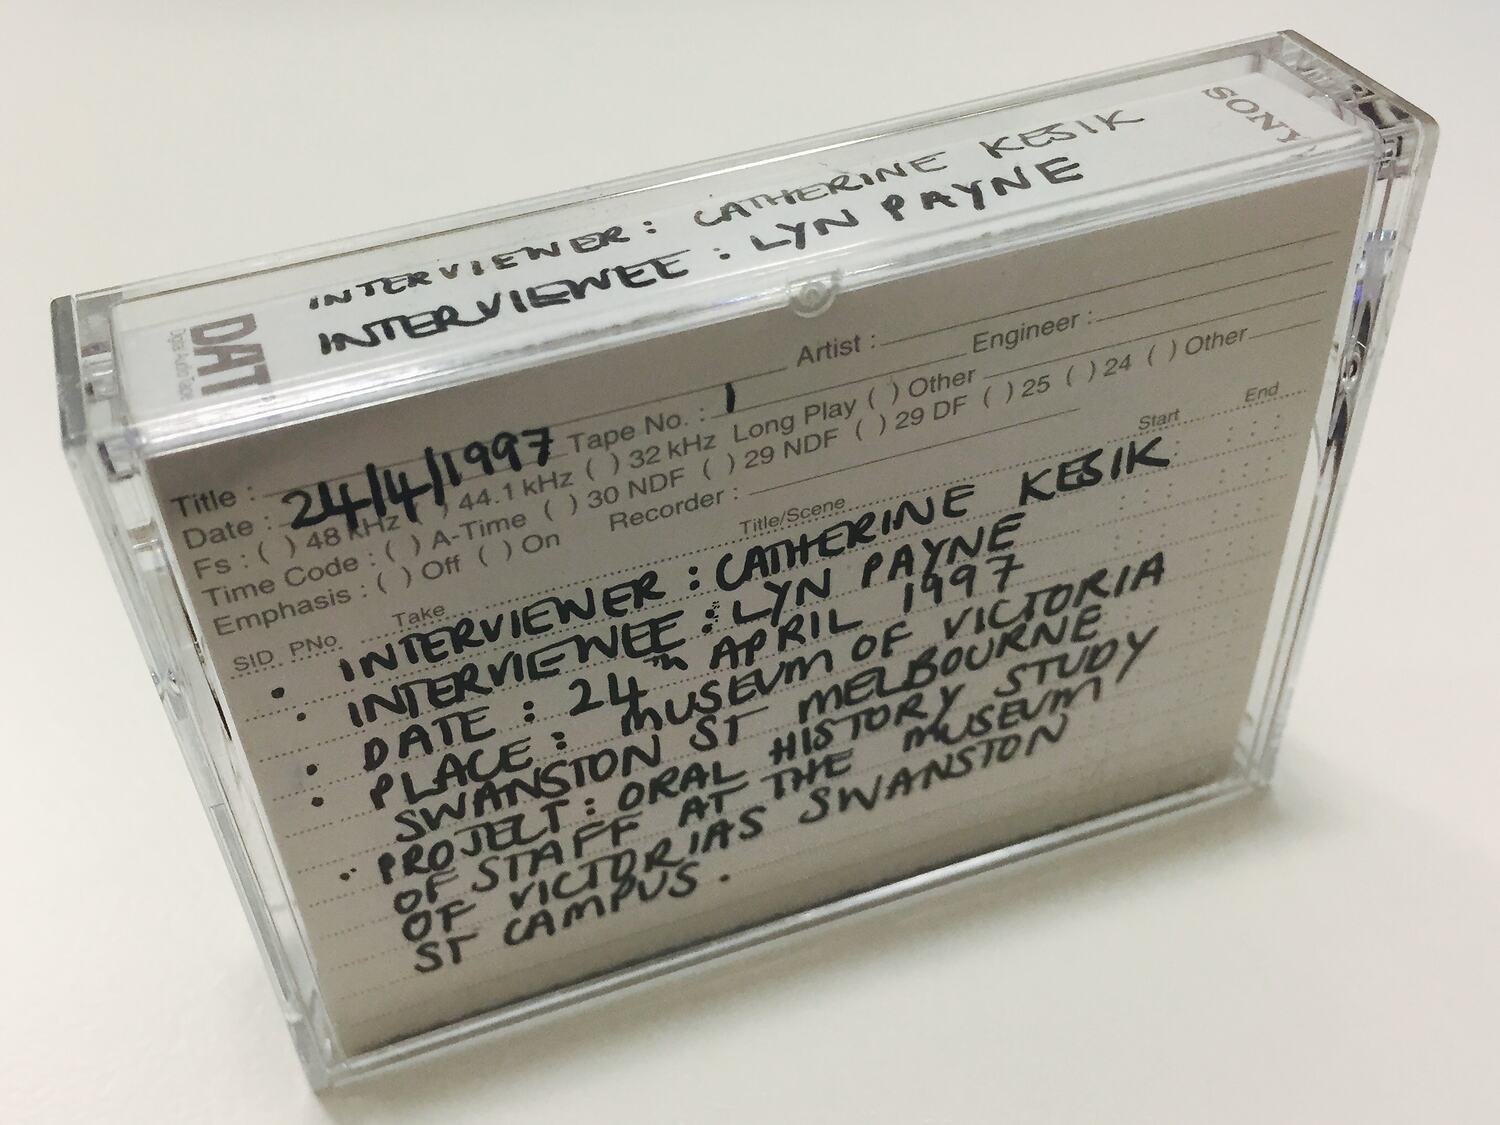 SONY
DAT
INTERVIEWER : CATHERINE KESIK
INTERVIEWEE : LYN PAYNE
Title : Artist :
Date : 24/4/1997 Tape No. : 1 Engineer :
Fs : ( ) 48 kHz ( ) 44.1 kHz ( ) 32 kHz Long Play ( ) Other
Time Code : ( ) A-Time ( ) 30 NDF ( ) 29 NDF ( ) 29 DF ( ) 25 ( ) 24 ( ) Other
Emphasis : ( ) Off ( ) On Recorder :
SID PNo. Take Title/Scene Start End
• INTERVIEWER : CATHERINE KESIK
• INTERVIEWEE : LYN PAYNE
• DATE : 24th APRIL 1997
• PLACE : MUSEUM OF VICTORIA
SWANSTON ST MELBOURNE
• PROJECT : ORAL HISTORY STUDY
OF STAFF AT THE MUSEUM
OF VICTORIAS SWANSTON
ST CAMPUS.